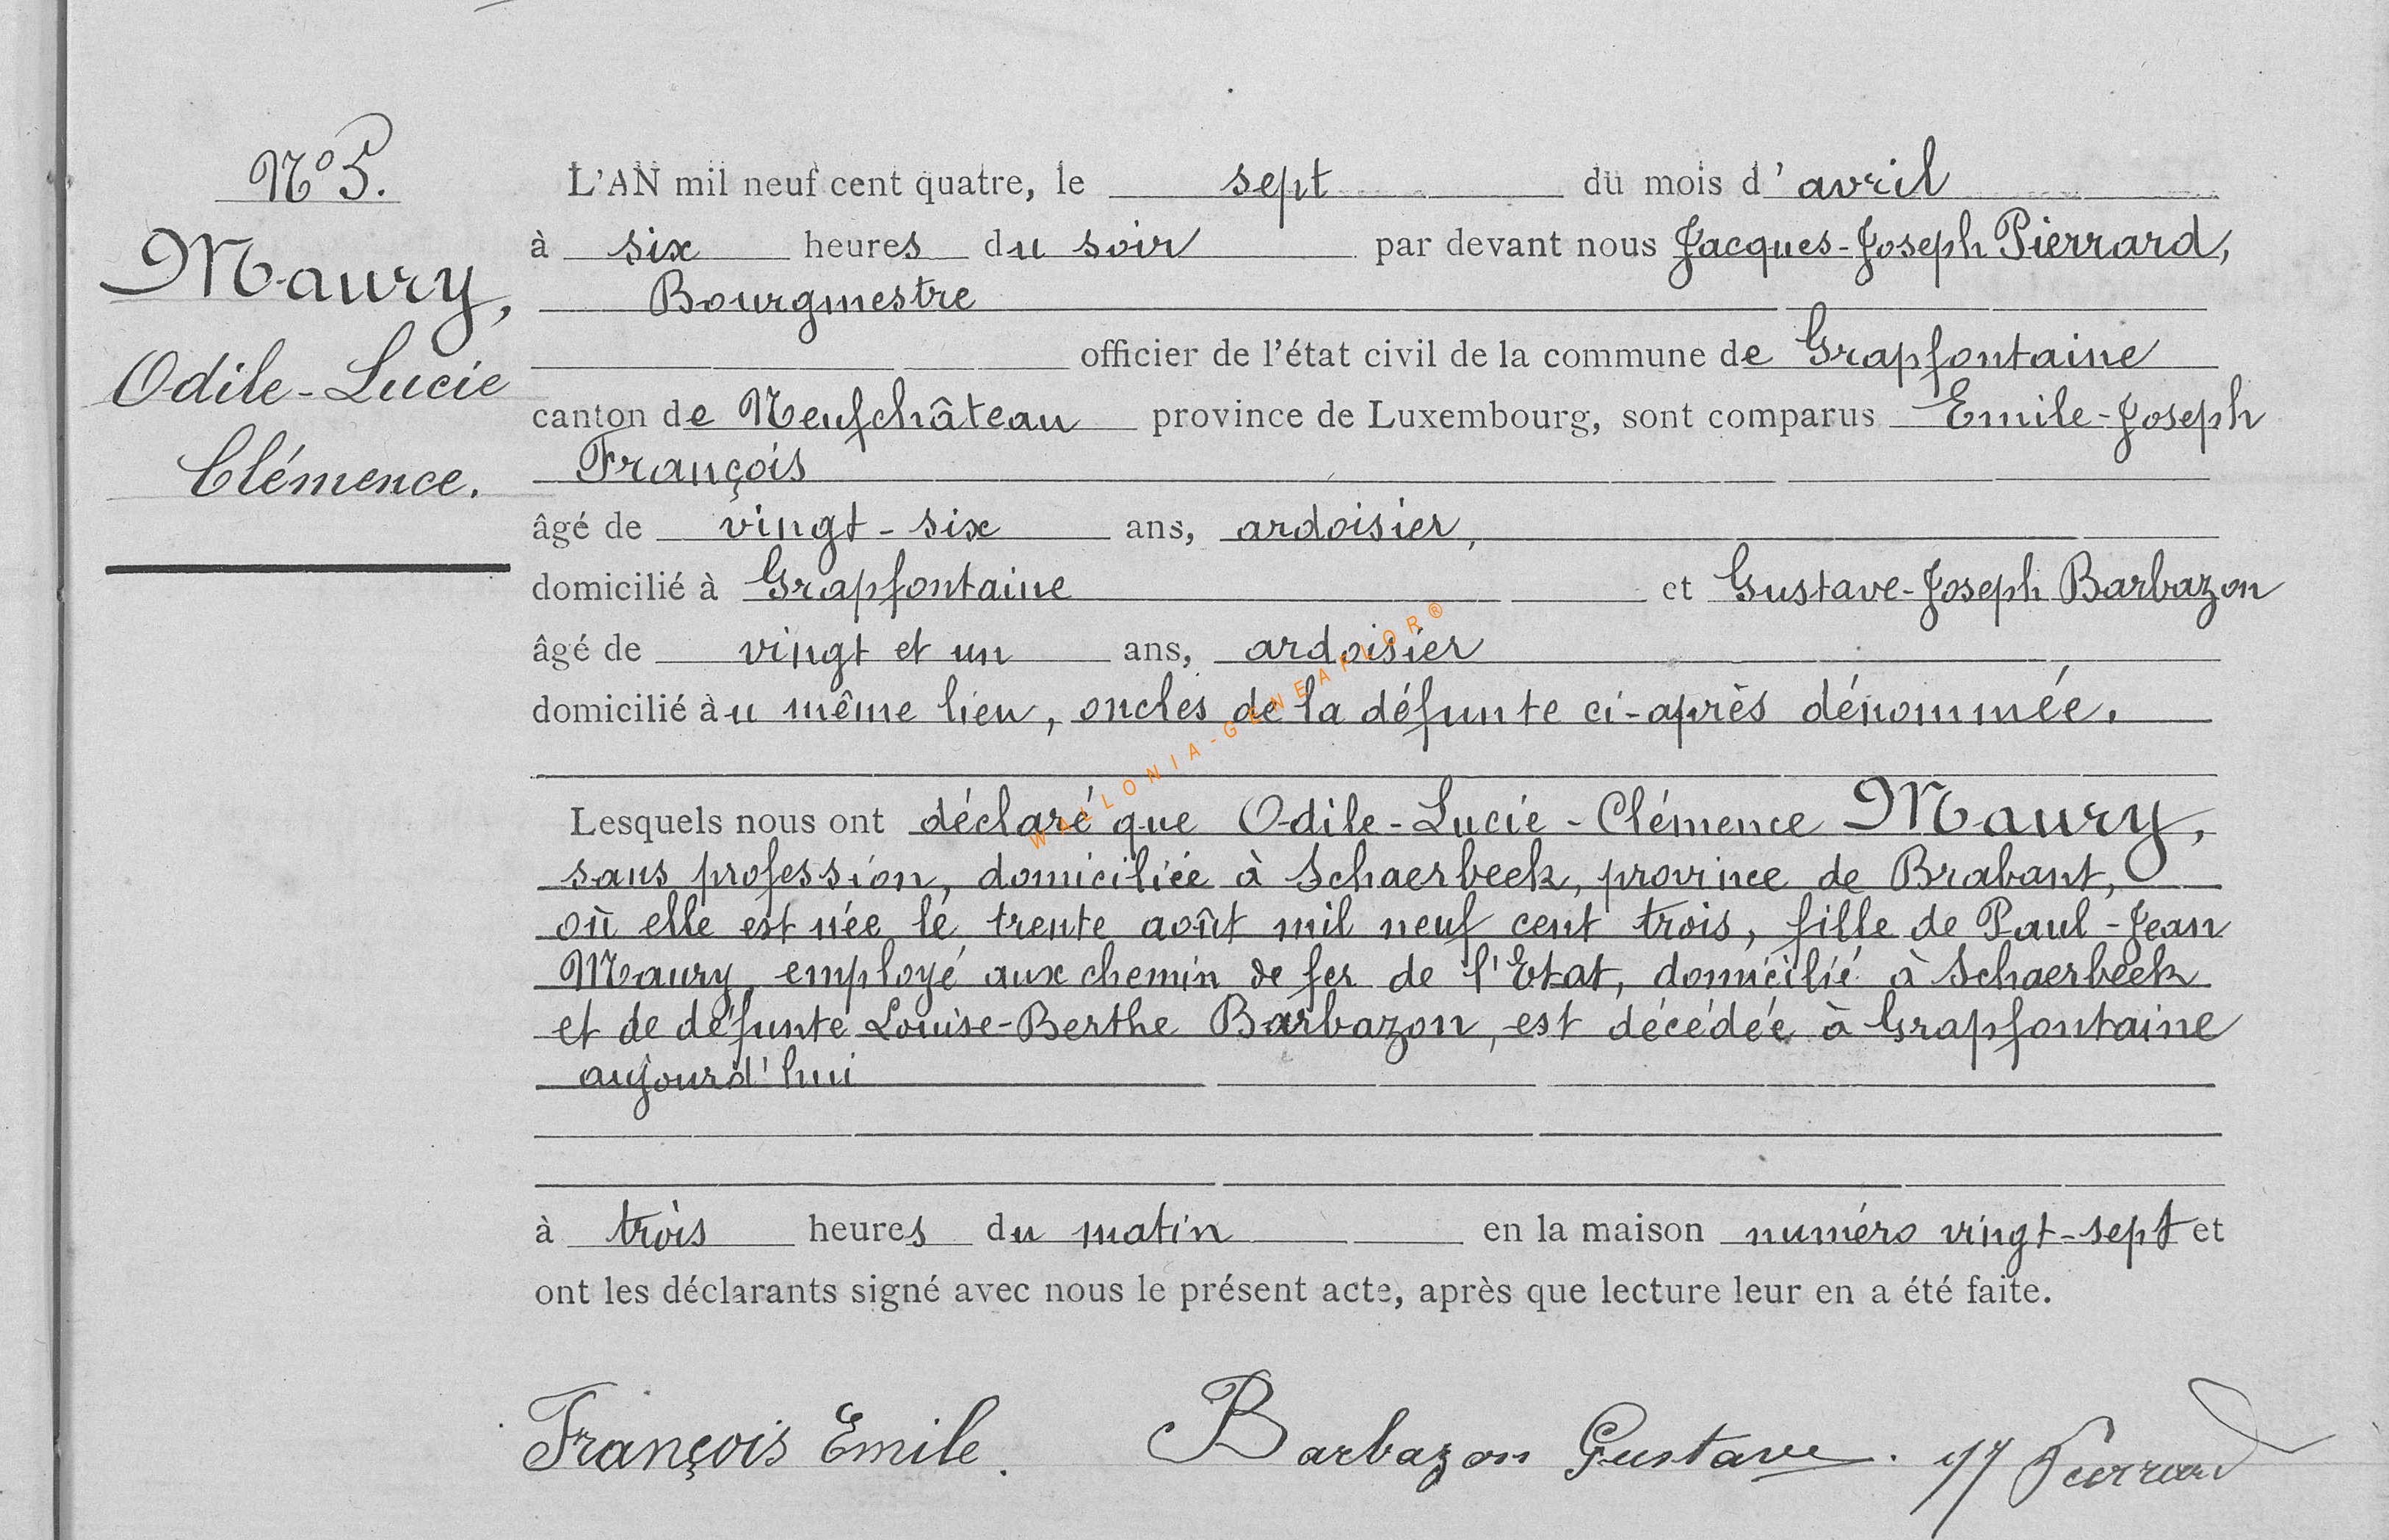 N° 5.
Maury,
Odile-Lucie
Clémence.
L'AN mil neuf cent quatre, le sept du mois d'avril
à six heures du soir par devant nous Jacques-Joseph Pierrard,
Bourgmestre
officier de l'état civil de la commune de Grapfontaine
canton de Neufchâteau province de Luxembourg, sont comparus Emile-Joseph
François
âgé de vingt-six ans, ardoisier,
domicilié à Grapfontaine et Gustave-Joseph Barbazon
âgé de vingt et un ans, ardoisier
domicilié au même lieu, oncles de la défunte ci-après dénommée.
Lesquels nous ont déclaré que Odile-Lucie-Clémence Maury,
sans profession, domiciliée à Schaerbeek, province de Brabant,
où elle est née le trente août mil neuf cent trois, fille de Paul-Jean
Maury, employé aux chemin de fer de l'Etat, domicilié à Schaerbeek
et de défunte Louise-Berthe Barbazon, est décédée à Grapfontaine
aujourd'hui
à trois heures du matin en la maison numéro vingt-sept et
ont les déclarants signé avec nous le présent acte, après que lecture leur en a été faite.
François Emile. Barbazon Gustave. JJ Pierrard
WALLONIA-GENEAFLOR®